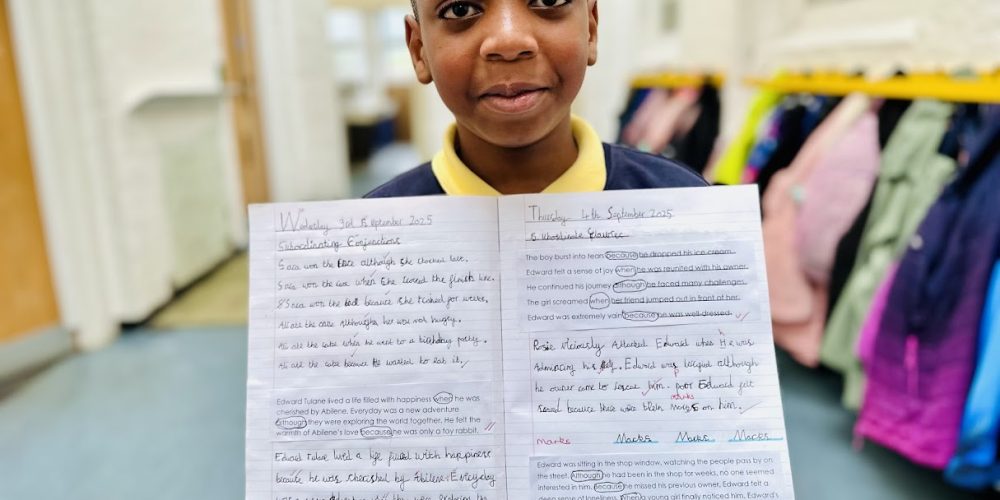 Wednesday 3rd September 2025
Subordinating Conjunctions
Sara won the race although she started late.
Sara won the race when she crossed the finish line.
Sara won the because she trained for weeks.
Ali ate the cake although he was not hungry.
Ali ate the cake when he went to a birthday party.
Ali ate the cake because he wanted to eat it.
Edward Tulane lived a life filled with happiness when he was
cherished by Abilene. Everyday was a new adventure
although they were exploring the world together. He felt the
warmth of Abilene's love because he was only a toy rabbit.
Edward Tulane lived a life filled with happiness
because he was cherished by Abilene. Everyday
they were exploring the
Thursday 4th September 2025
The boy burst into tears because he dropped his ice cream.
Edward felt a sense of joy when he was reunited with his owner.
He continued his journey although he faced many challenges.
The girl screamed when her friend jumped out in front of her.
Edward was extremely vain because he was well-dressed.
Rosie viciously Attacked Edward when He was
Admiring his . Edward was although
he owner came to rescue him. poor Edward felt
because there were Marks on him.
Marks Marks Marks Marks
Edward was sitting in the shop window, watching the people pass by on
the street. Although he had been in the shop for weeks, no one seemed
interested in him. Because he missed his previous owner, Edward felt a
deep sense of loneliness. When a young girl finally noticed him, Edward's